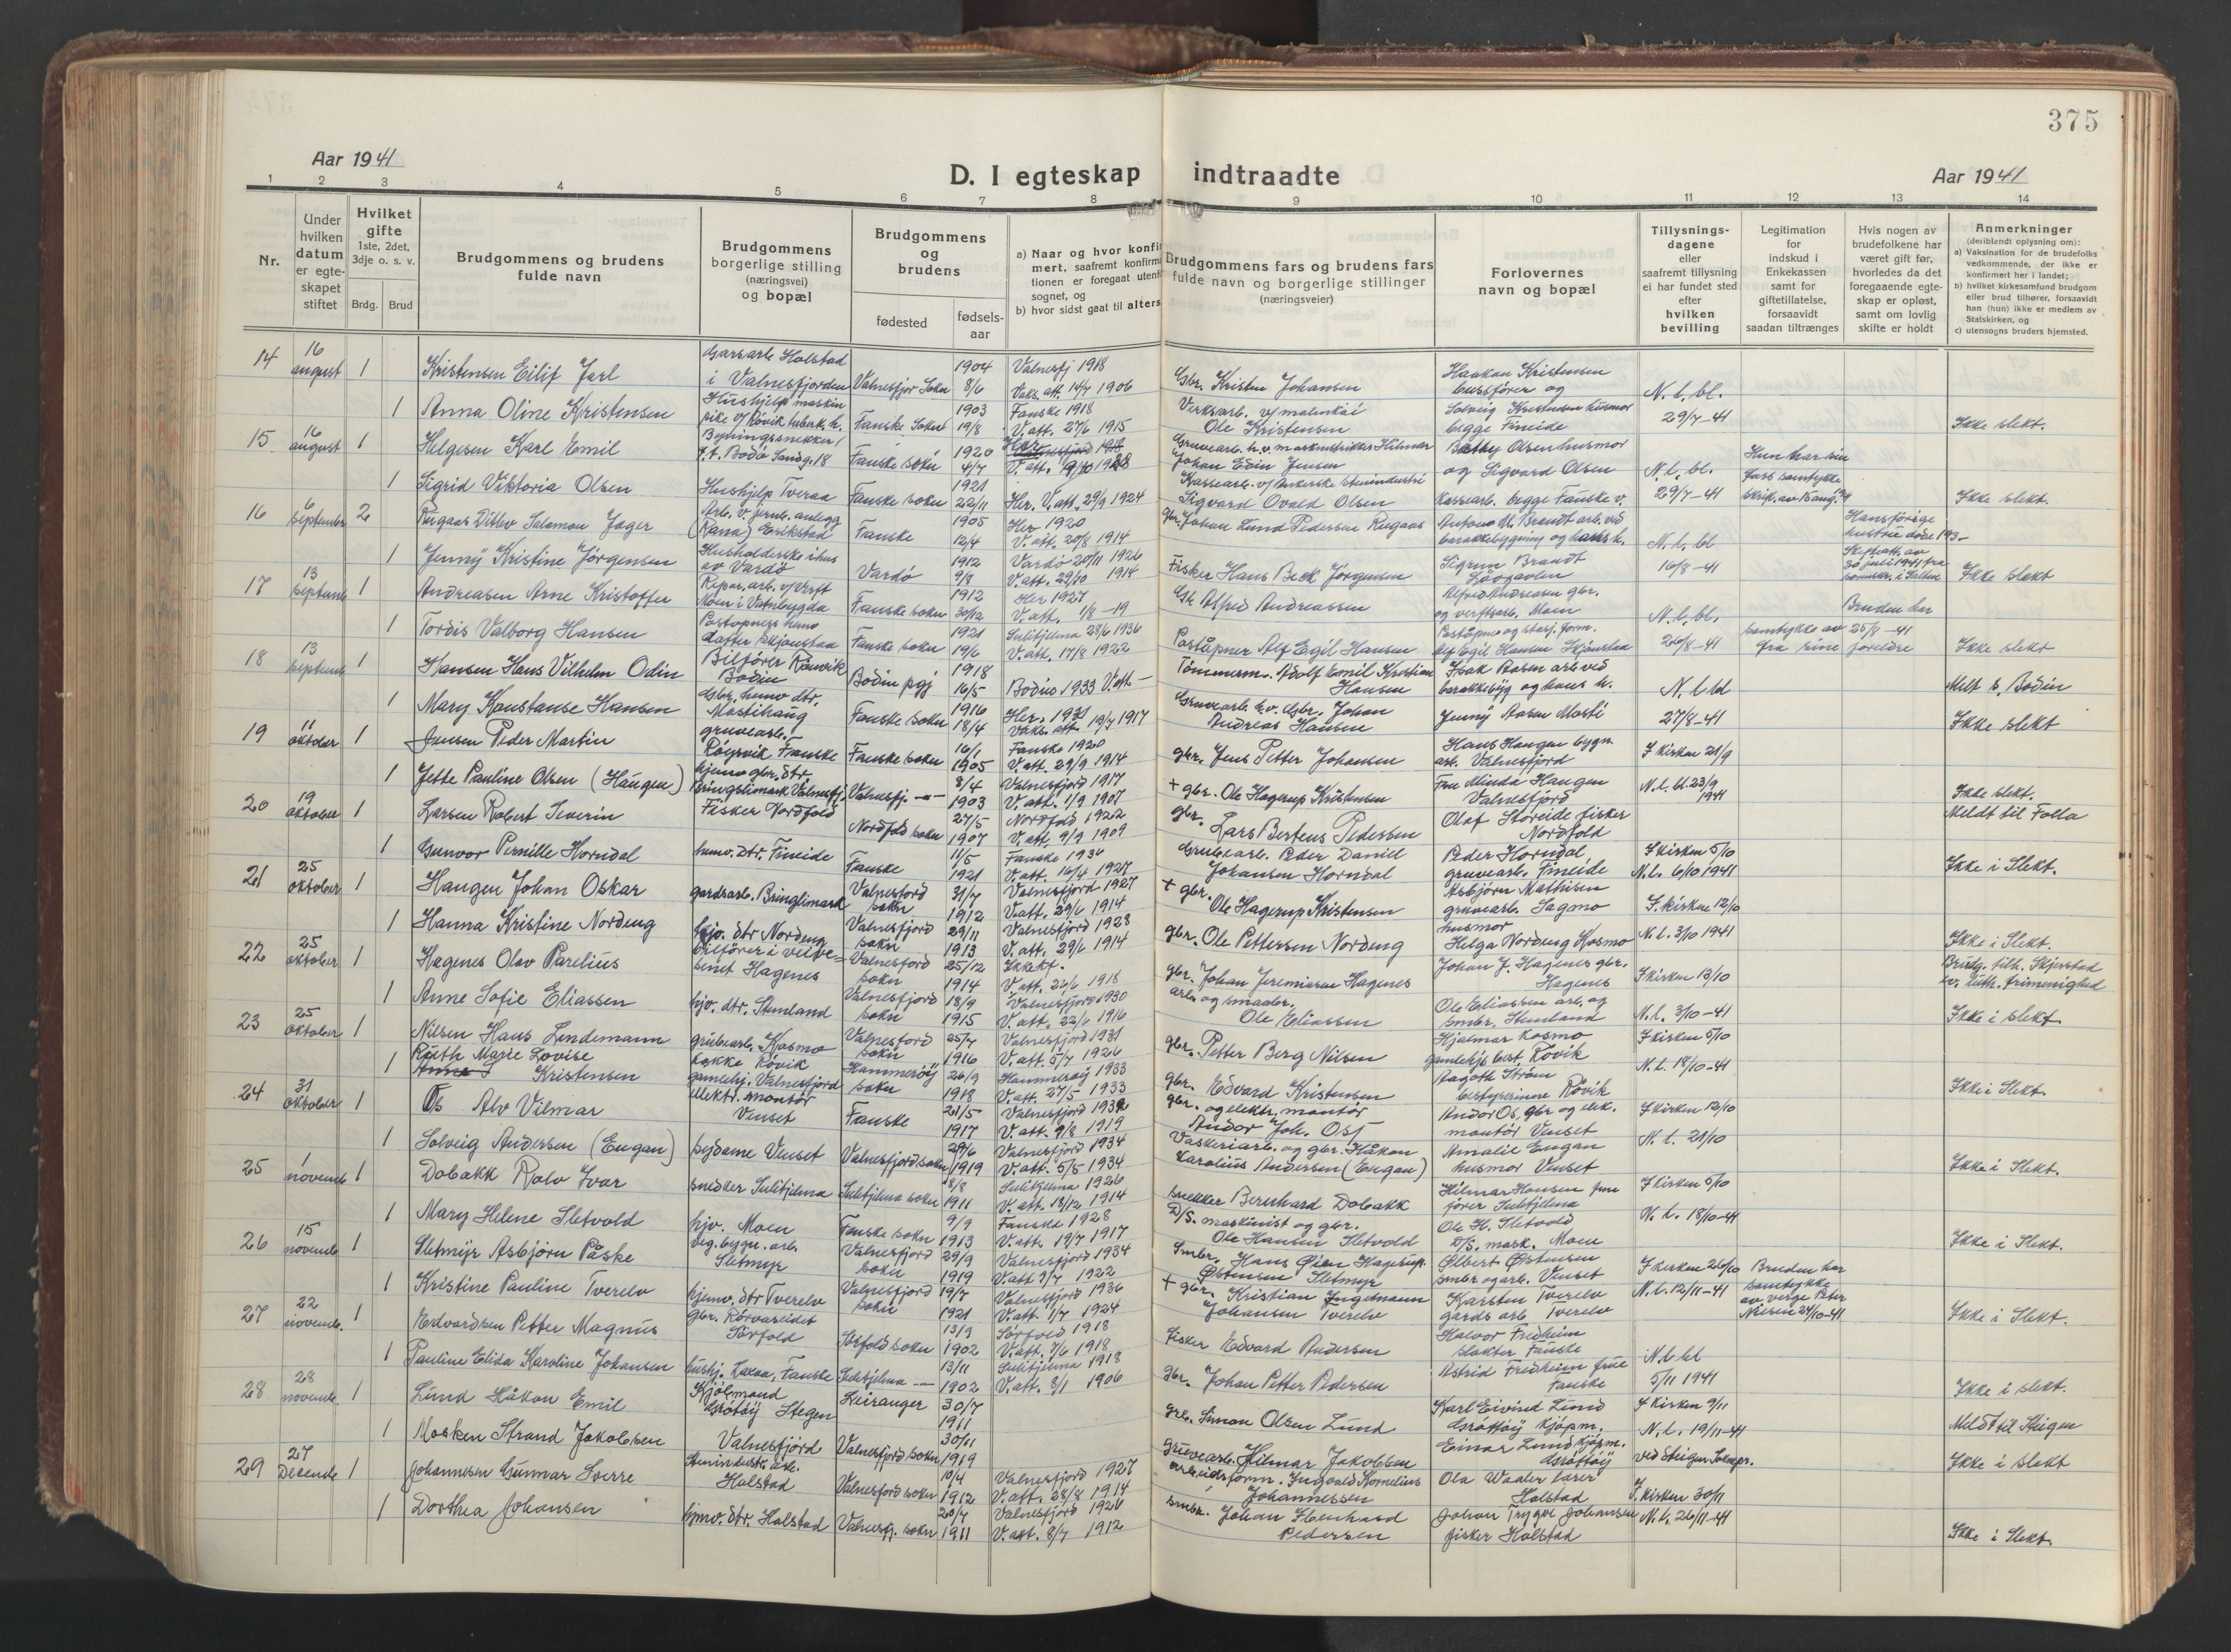 375
Aar 1941
D. I egteskap indtraadte
Aar 1941
1 2 3 4 5 6 7 8 9 10 11 12 13 14
Nr.
Under hvilken datum er egteskapet stiftet
Hvilket gifte 1ste, 2det, 3dje o. s. v.
Brdg. Brud
Brudgommens og brudens fulde navn
Brudgommens borgerlige stilling (næringsvei) og bopæl
Brudgommens og brudens
fødested
fødselsaar
a) Naar og hvor konfir
mert, saafremt konfirma
tionen er foregaat utenf
sognet, og
b) hvor sidst gaat til alters
Brudgommens fars og brudens fars fulde navn og borgerlige stillinger (næringsveier)
Forlovernes navn og bopæl
Tillysningsdagene eller saafremt tillysning ei har fundet sted efter hvilken bevilling
Legitimation for indskud i Enkekassen samt for giftetillatelse, forsaavidt saadan tiltrænges
Hvis nogen av brudefolkene har været gift før, hvorledes da det foregaaende egteskap er opløst, samt om lovlig skifte er holdt
Anmerkninger
(deriblandt oplysning om):
a) Vaksination for de brudefolks vedkommende, der ikke er konfirmert her i landet;
b) hvilket kirkesamfund brudgom eller brud tilhører, forsaavidt han (hun) ikke er medlem av Statskirken, og
c) utensogns bruders hjemsted.
14 16 august 1 Kristensen Eilif Jarl Holstad i Valnesfjorden Valnesfjor Sokn 1904 8/6 Valnesfj 1918 Vaks. att. 14/7 1906 Gbr. Kristen Johansen Haakon Kristensen bussfører og N. l. bl.
1 Anna Oline Kristensen Hushjelp Fauske Sokn 1903 19/8 Fauske 1918 V. att. 27/6 1915 Ole Kristensen Solveig Kristensen husmor begge Fineide 29/7-41 Ikke slekt.
15 16 august 1 Helgesen Karl Emil Bygningssnekker f.t. Bodø Sandg. 18 Fauske sokn 1920 4/7 Johan Edin Jensen Betsy Olsen husmor og Sigvard Olsen N. l. bl. Hun har sin fars samtykke
1 Sigrid Viktoria Olsen Hushjelp Tveraa Fauske sokn 1921 22/11 Her. V. att. 29/9 1924 Sigvard Ovald Olsen begge Fauske v. 29/7-41 Ikke slekt.
16 6 september 2 Rugaas Ditlev Salamon Jæger Erikstad Fauske 1905 12/4 Her 1920 V. att. 20/8 1914 Gbr. Johan Lund Pedersen Rugaas Antone M. Brandt arb. ved barakkebygning og hans h. N. l. bl Hans forrige hustru døde 193-
1 Jenny Kristine Jørgensen Husholderske i hus av Vardø Vardø 1912 9/8 Vardø 20/11 1926 V. att. 29/10 1914 Fisker Hans Beck Jørgensen Sigrun Brandt Løvgavlen 16/8-41 Skifteatt. av 30 juli 1941 fra Ikke slekt
17 13 septemb 1 Andreasen Arne Kristoffer Repar. arb. v/ Verft Moen i Vatnbygda Fauske sokn 1912 30/12 Her 1927 V. att. 1/8-19 Gbr Alfred Andreassen Alfred Andreasen gbr. og verftsarb. Moen N. l. bl. Bruden har
1 Tordis Valborg Hansen Postopners hemv datter Skjønstaa Fauske sokn 1921 19/6 Sulitjelma 28/6 1936 V. att. 17/8 1922 Poståpner Alf Egil Hansen Alf Egil Hansen Skjønstaa 26/8-41 samtykke av 25/8-41 fra sine foreldre Ikke slekt
18 13 septemb 1 Hansen Hans Vilhelm Odin Bilfører Rønvik Bodin Bodin pgj 1918 16/5 Bodin 1933 V. att- Tømmerm. Adolf Emil Kristian Hansen Isak Aasen arb ved barakkebyg og hans h. N. l. bl Meldt s. Bodin
1 Mary Konstanse Hansen Gbr. hemv dtr. Mostihaug Fauske sokn 1916 18/4 Her. 1931 Vaks. att. 19/7 1917 Gruvearb. h.v. Gbr. Johan Andreas Hansen Jenny Aasen Mosti 27/8-41 Ikke slekt
19 11 oktober 1 Jensen Peder Martin gruvearb. Røysvik Fauske Fauske sokn 16/1 1905 Fauske 1920 V att. 29/9 1914 gbr. Jens Petter Johansen Hans Haugen bygn. arb. Valnesfjord I kirken 21/9
1 Jette Pauline Olsen (Haugen) hjemv gbr. dtr. Bringslimark Valnesfj. Valnesfj. -"- 8/4 1903 Valnesfjord 1917 V. att. 1/9 1907 + gbr. Ole Hagerup Kristensen Fru Minda Haugen Valnesfjord N. l. bl. 23/9 1941 Ikke slekt.
20 19 oktober 1 Larsen Robert Severin Fisker Nordfold Nordfold sokn 27/5 1907 Nordfold 1922 V. att. 9/9 1909 gbr. Lars Berteus Pedersen Olaf Storeide fisker Nordfold Meldt til Folla
1 Gunvor Pernille Horndal hemv. dtr. Fineide Fauske 11/5 1921 Fauske 1934 V. att. 16/4 1927 Gruvearb. Peder Daniel Johansen Horndal Peder Horndal gruvearb. Fineide I kirken 5/10 N. l. 6/10 1941 Ikke i Slekt.
21 25 oktober 1 Haugen Johan Oskar gardsarb. Bringslimark Valnesfjord sokn 31/7 1912 Valnesfjord 1927 V. att. 29/6 1914 + gbr. Ole Hagerup Kristensen Asbjørn Mathisen gruvearb. Sagmo I. kirken 12/10
1 Hanna Kristine Nordeng hjv. dtr Nordeng Valnesfjord sokn 29/11 1913 Valnesfjord 1928 V. att. 29/6 1914 gbr. Ole Pettersen Nordeng husmor Helga Nordeng Kosmo N. l. 3/10 1941 Ikke i Slekt.
22 25 oktober 1 Hagenes Olav Parelius Bilfører i veivesenet Hagenes Valnesfjord sokn 25/12 1914 V. att. 22/6 1918 gbr. Johan Jeremiasen Hagenes Johan J. Hagenes gbr. Hagenes I kirken 13/10 Brudg. tilh. Skjerstad ev. luth. frimenighed
1 Anne Sofie Eliassen hjv. dtr. Stemland Valnesfjord sokn 18/9 1915 Valnesfjord 1930 V. att. 22/6 1916 arb. og smaabr. Ole Eliassen Ole Eliassen arb. og smbr. Stemland N. l. 3/10-41 Ikke i slekt
23 25 oktober 1 Nilsen Hans Lindemann grubearb. Kosmo Valnesfjord sokn 25/7 1916 Valnesfjord 1931 V. att. 5/7 1926 gbr. Petter Berg Nilsen Hjalmar Kosmo I kirken 5/10
1 Ruth Marie Lovise Kristensen kokke Røvik gamlehj. Valnesfjord Hammerøy sokn 26/9 1918 Hammerøy 1933 V. att. 27/5 1933 gbr. Edvard Kristensen Aagoth Strøm bestyrerinne Røvik N. l. 18/10-41 Ikke i Slekt.
24 31 oktober 1 Os Alv Vilmar elektr. montør Venset Fauske 21/5 1917 Valnesfjord 1932 V. att. 9/8 1919 gbr. og elektr. montør Andor Joh. Os Andor Os, gbr og elek. montør Venset I kirken 12/10
1 Solveig Andersen (Engan) sydame Venset Valnesfjord sokn 29/6 1919 Valnesfjord 1934 V. att. 5/5 1934 Vaskeriarb. og gbr. Håkon Karolius Andersen (Engan) Amalie Engan husmor Venset N. l. 21/10 Ikke i Slekt.
25 1 novemb 1 Dobakk Rolv Ivar snekker Sulitjelma Sulitjelma sokn 8/8 1911 Sulitjelma 1926 V. att. 18/12 1914 snekker Bernhard Dobakk Hilmar Hansen Sulitjelma I kirken 5/10
1 Mary Helene Sletvold hjv. Moen Fauske sokn 9/9 1913 Fauske 1928 V. att. 19/7 1917 D/S. maskinist og gbr. Ole Hansen Sletvold Ole H. Sletvold D/S. mask. Moen N. l. 18/10-41 Ikke i Slekt.
26 15 novemb 1 Sletmyr Asbjørn Påske veg. bygn. arb. Sletmyr Valnesfjord sokn 29/9 1919 Valnesfjord 1934 V. att 3/7 1922 Smbr. Hans Øien Hagerup. Østensen Sletmyr Ølbert Østensen smbr og arb. Venset I kirken 26/10 Bruden har samtykke
1 Kristine Pauline Tverelv hjemv. dtr Tverelv Valnesfjord sokn 19/7 1921 Valnesfjord 1936 V. att. 1/7 1924 + gbr. Kristian Ingelmann Johansen Tverelv Karsten Tverelv gards arb Tverelv N. l. 12/11-41 av verge Peter Nielsen 24/10-41 Ikke i Slekt.
27 22 novemb. 1 Edvardsen Petter Magnus gbr. Rørvaseidet Sørfold Sørfold sokn 13/9 1902 Sørfold 1918 V. att. 7/6 1918 Fisker Edvard Andersen Halvor Fredheim slakter Fauske N. l. bl
1 Pauline Elida Karoline Johansen hushj. Fauske Sulitjelma -"- 13/11 1902 Sulitjelma 1918 V. att. 8/1 1906 gbr. Johan Petter Pedersen Astrid Fredheim frue Fauske 5/11 1941 Ikke i slekt.
28 28 novemb. 1 Lund Håkon Emil Kjøbmand Grøtøy Steigen Leiranger 30/7 1911 gbr. Simon Olsen Lund Karl Eivind Lund Grøttøy kjøpm. I kirken 9/11 Meldt til Steigen
1 Mosken Strand Jakobsen Valnesfjord Valnesfjord sokn 30/11 1919 gruvearb. Hilmar Jakobsen Einar Lund kjøpm. Grøttøy N. l. 19/11-41 ved Steigen Soknepr. Ikke i slekt
29 27 Desemb 1 Johannesen Gunnar Sverre Stenindustr. arb. Holstad Valnesfjord sokn 10/4 1912 Valnesfjord 1927 V. att. 28/8 1914 arbeidsform. Ingvald Kornelius Johannessen Ola Waaler lærer Holstad I. kirken 30/11
1 Dorthea Johansen hjmv. dtr. Holstad Valnesfj. sokn 20/7 1911 Valnesfjord 1926 V. att. 8/7 1912 smbr. Johan Pedersen Johan Trygve Johansen fisker Holstad N. l. 26/11-41 Ikke i Slekt.